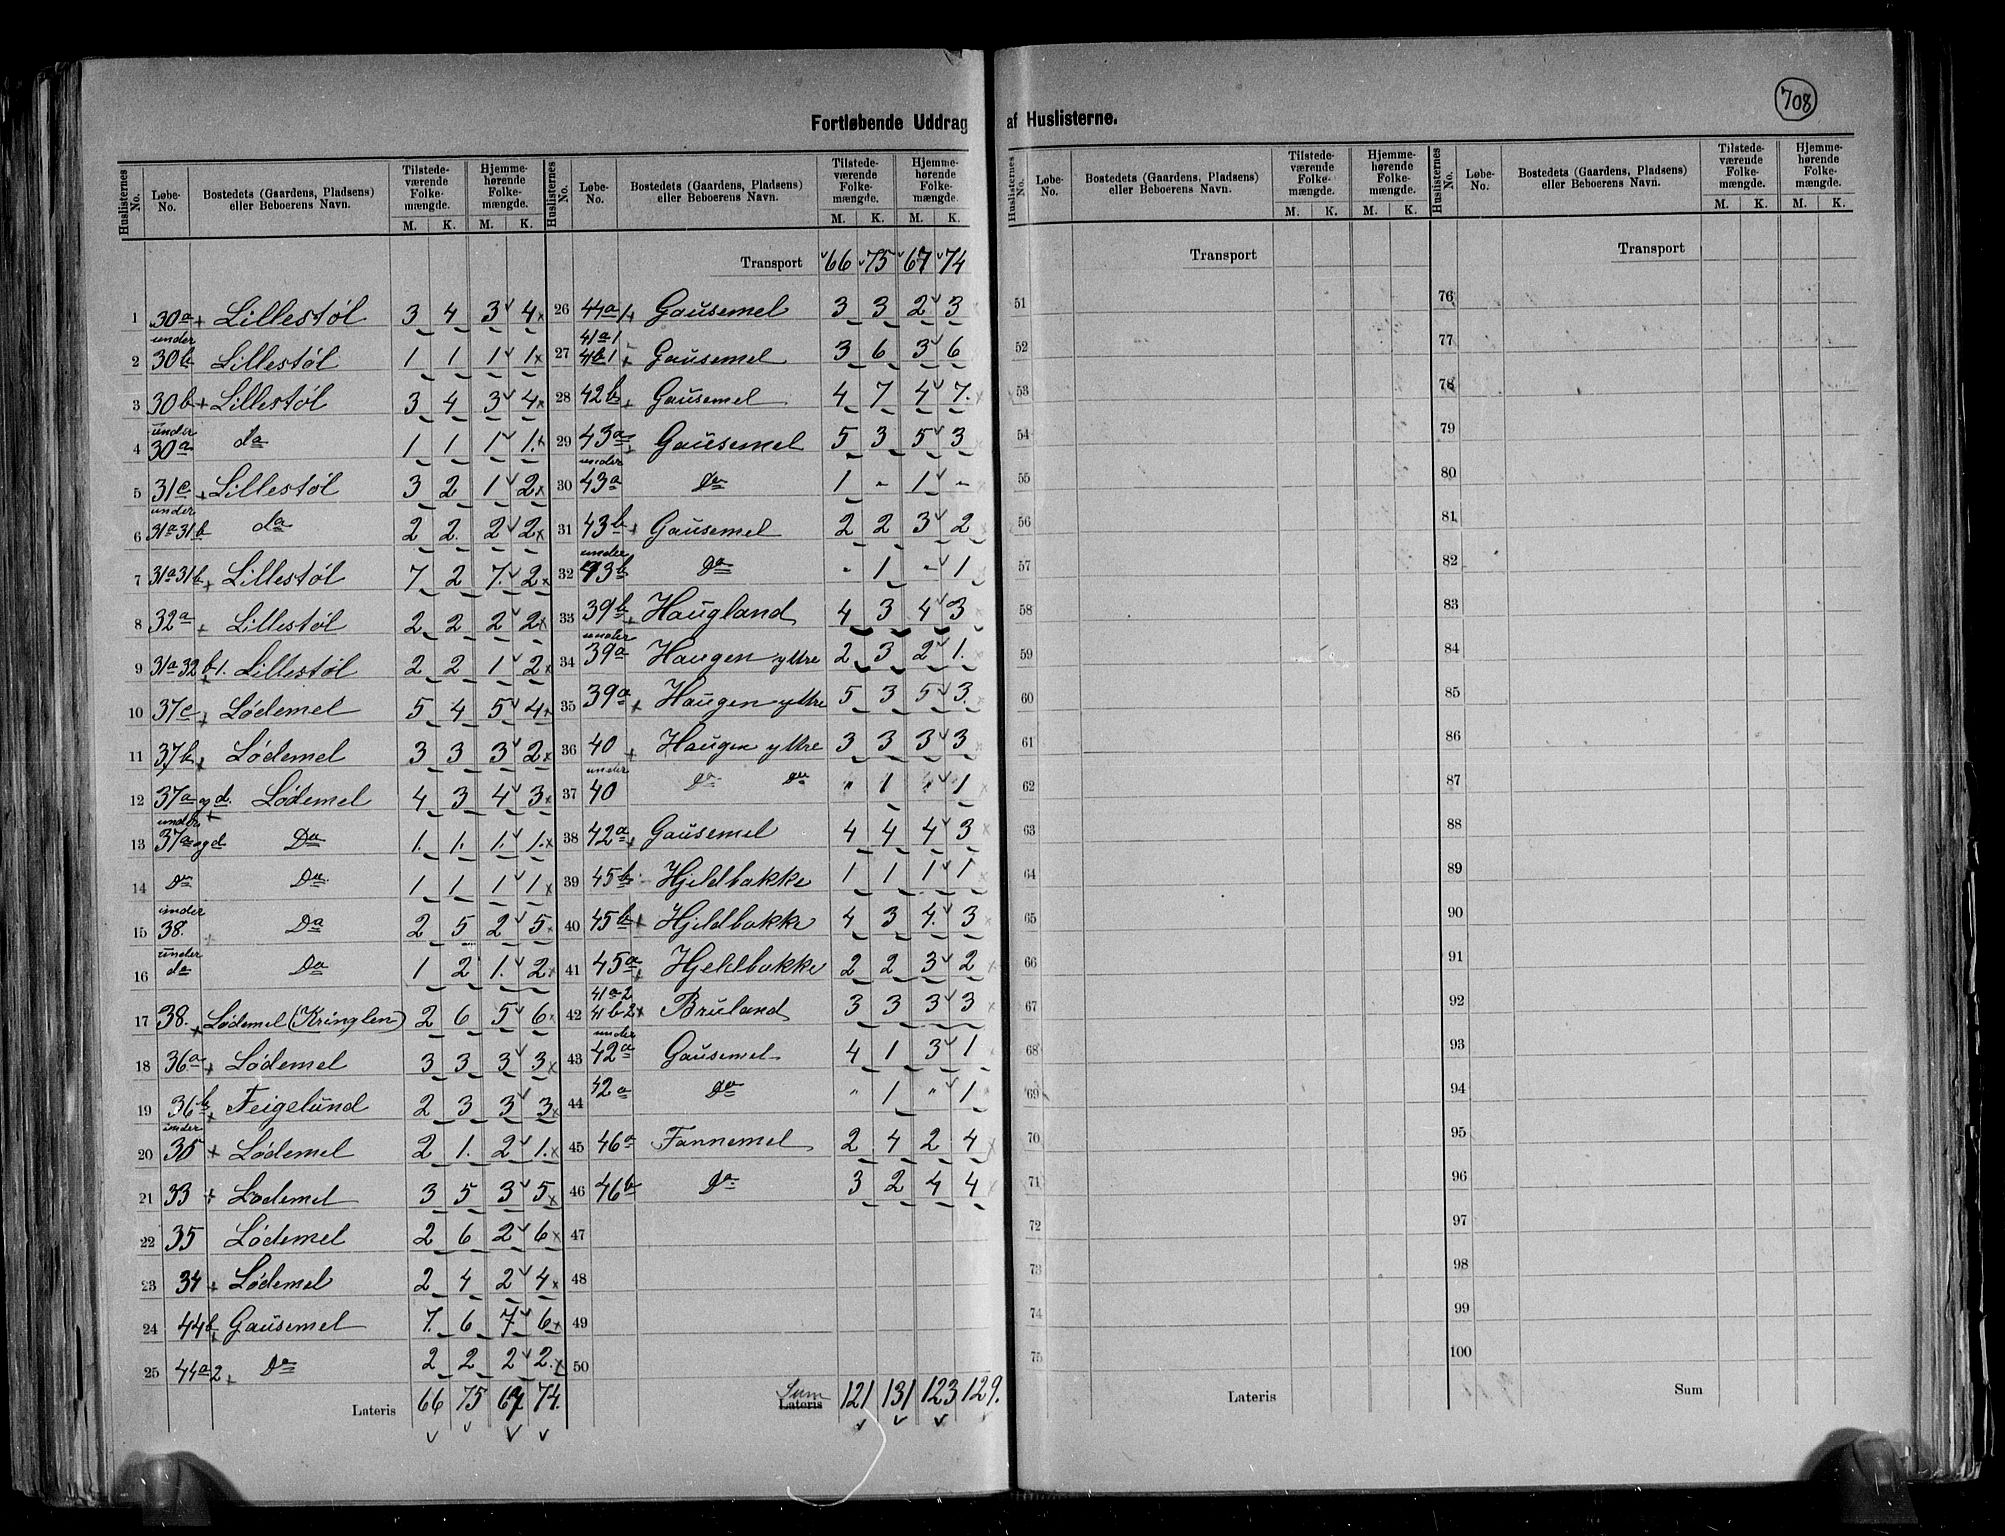 708
Fortløbende Uddrag af Huslisterne.
Huslisternes No. | Løbe-No. | Bostedets (Gaardens, Pladsens) eller Beboerens Navn. | Tilstedeværende Folkemængde. M. K. | Hjemmehørende Folkemængde. M. K.
1 30a + Lillestøl 3 4 3 4
2 under 30b Lillestøl 1 1 1 1
3 30b + Lillestøl 3 4 3 4
4 under 30a da 1 1 1 1
5 31c + Lillestøl 3 2 1 2
6 under 31a 31b da 2 2 2 2
7 31a 31b + Lillestøl 7 2 7 2
8 32a + Lillestøl 2 2 2 2
9 31a 32b1. + Lillestøl 2 2 1 2
10 37c + Lødemel 5 4 5 4
11 37b + Lødemel 3 3 3 2
12 37a og d. + Lødemel 4 3 4 3
13 under 37a og d Da 1. 1. 1. 1.
14 Da Da 1 1 1 1
15 under 38. Da 2 5 2 5
16 under da Da 1 2 1. 2
17 38. + Lødemel (Kringlen) 2 6 5 6
18 36a + Lødemel 3 3 3 3
19 36b + Feigelund 2 3 3 3
20 under 35 + Lødemel 2 1. 2 1.
21 33 + Lødemel 3 5 3 5
22 35 Lødemel 2 6 2 6
23 34 + Lødemel 2 4 2 4
24 44b + Gausemel 7. 6 7 6
25 44a2 + Da 2 2 2 2.
Lateris 66 75 67 74.
Huslisternes No. | Løbe-No. | Bostedets (Gaardens, Pladsens) eller Beboerens Navn. | Tilstedeværende Folkemængde. M. K. | Hjemmehørende Folkemængde. M. K.
Transport 66 75 67 74
26 44a1 + Gausemel 3 3 2 3
27 41a1 41b1 + Gausemel 3 6 3 6
28 42b + Gausemel 4 7 4 7.
29 43a + Gausemel 5 3 5 3
30 under 43a Da 1 - 1 -
31 43b + Gausemel 2 2 3 2
32 under 43b Da " 1 - 1
33 39b + Haugland 4 3 4 3
34 under 39a Haugen yttre 2 3 2 1.
35 39a + Haugen yttre 5 3 5 3.
36 40 + Haugen yttre 3 3 3 3
37 under 40 Da Da " 1 " 1
38 42a + Gausemel 4 4 4 3
39 45b - Hjeldbakke 1 1 1 1
40 45b + Hjeldbakke 4 3 4. 3
41 45a + Hjeldbakke 2 2 3 2
42 41a2 41b2 x Bruland 3 3 3 3
43 under 42a Gausemel 4 1 3 1
44 42a Da " 1 " 1
45 46a Fannemel 2 4 2 4
46 46b Da 3 2 4 4
47
48
49
50
Sum Lateris 121 131 123 129.
Huslisternes No. | Løbe-No. | Bostedets (Gaardens, Pladsens) eller Beboerens Navn. | Tilstedeværende Folkemængde. M. K. | Hjemmehørende Folkemængde. M. K.
Transport
51
52
53
54
55
56
57
58
59
60
61
62
63
64
65
66
67
68
69
70
71
72
73
74
75
Lateris
Huslisternes No. | Løbe-No. | Bostedets (Gaardens, Pladsens) eller Beboerens Navn. | Tilstedeværende Folkemængde. M. K. | Hjemmehørende Folkemængde. M. K.
Transport
76
77
78
79
80
81
82
83
84
85
86
87
88
89
90
91
92
93
94
95
96
97
98
99
100
Sum